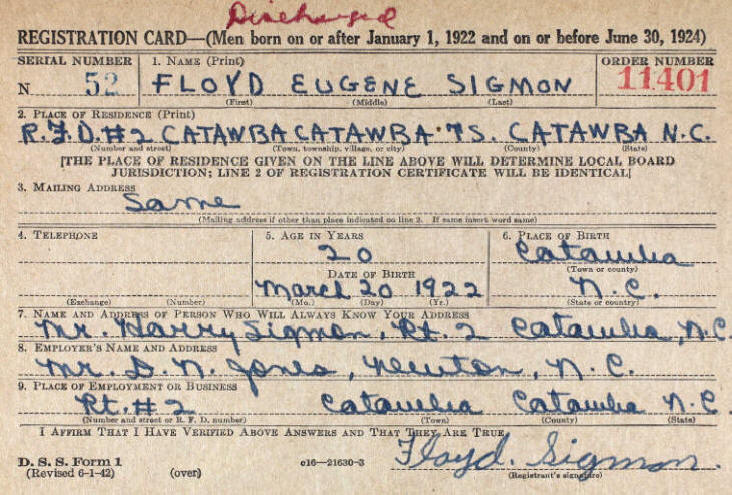 Discharged
REGISTRATION CARD—(Men born on or after January 1, 1922 and on or before June 30, 1924)
SERIAL NUMBER 1. NAME (Print) ORDER NUMBER
N 52 FLOYD EUGENE SIGMON 11401
(First) (Middle) (Last)
2. PLACE OF RESIDENCE (Print)
R.F.D.#2 CATAWBA CATAWBA TS. CATAWBA N.C.
(Number and street) (Town, township, village, or city) (County) (State)
[THE PLACE OF RESIDENCE GIVEN ON THE LINE ABOVE WILL DETERMINE LOCAL BOARD
JURISDICTION; LINE 2 OF REGISTRATION CERTIFICATE WILL BE IDENTICAL]
3. MAILING ADDRESS
Same
(Mailing address if other than place indicated on line 2. If same insert word same)
4. TELEPHONE 5. AGE IN YEARS 6. PLACE OF BIRTH
20 Catawba
(Town or county)
DATE OF BIRTH
March 20 1922 N.C.
(Exchange) (Number) (Mo.) (Day) (Yr.) (State or country)
7. NAME AND ADDRESS OF PERSON WHO WILL ALWAYS KNOW YOUR ADDRESS
Mr. Harry Sigmon, Rt. 2 Catawba, N.C.
8. EMPLOYER'S NAME AND ADDRESS
Mr. D. N. Jones, Newton, N.C.
9. PLACE OF EMPLOYMENT OR BUSINESS
Rt. #2 Catawba Catawba N.C.
(Number and street or R. F. D. number) (Town) (County) (State)
I AFFIRM THAT I HAVE VERIFIED ABOVE ANSWERS AND THAT THEY ARE TRUE.
Floyd. Sigmon.
D. S. S. Form 1
(Revised 6-1-42) (over) c16—21630-3 (Registrant's signature)